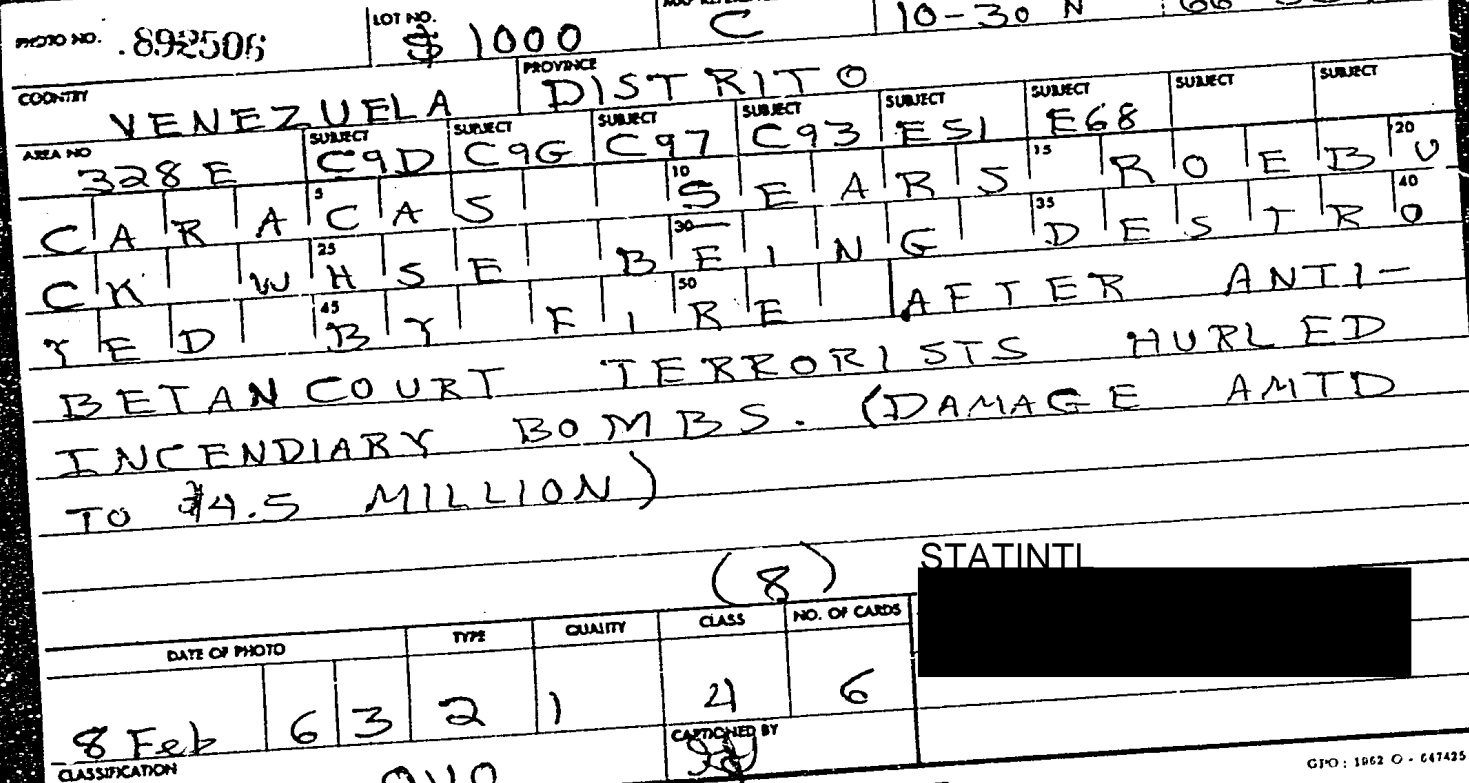 PHOTO NO. .892506 LOT NO. $ 1000 C 10-30 N
COUNTRY VENEZUELA PROVINCE DISTRITO
AREA NO 328 E SUBJECT C9D SUBJECT C9G SUBJECT C97 SUBJECT C93 SUBJECT E51 SUBJECT E68 SUBJECT SUBJECT
CARACAS 5 10 SEARS 15 ROEBU 20
CK WHSE 25 BEING 30 DESTRO 35 40
YED BY 45 FIRE 50 AFTER ANTI-
BETANCOURT TERRORISTS HURLED
INCENDIARY BOMBS. (DAMAGE AMTD
TO $4.5 MILLION)
(8) STATINTL
DATE OF PHOTO TYPE QUALITY CLASS NO. OF CARDS
8 Feb 6 3 2 1 4 6
CLASSIFICATION CAPTIONED BY
GPO : 1962 O - 647425